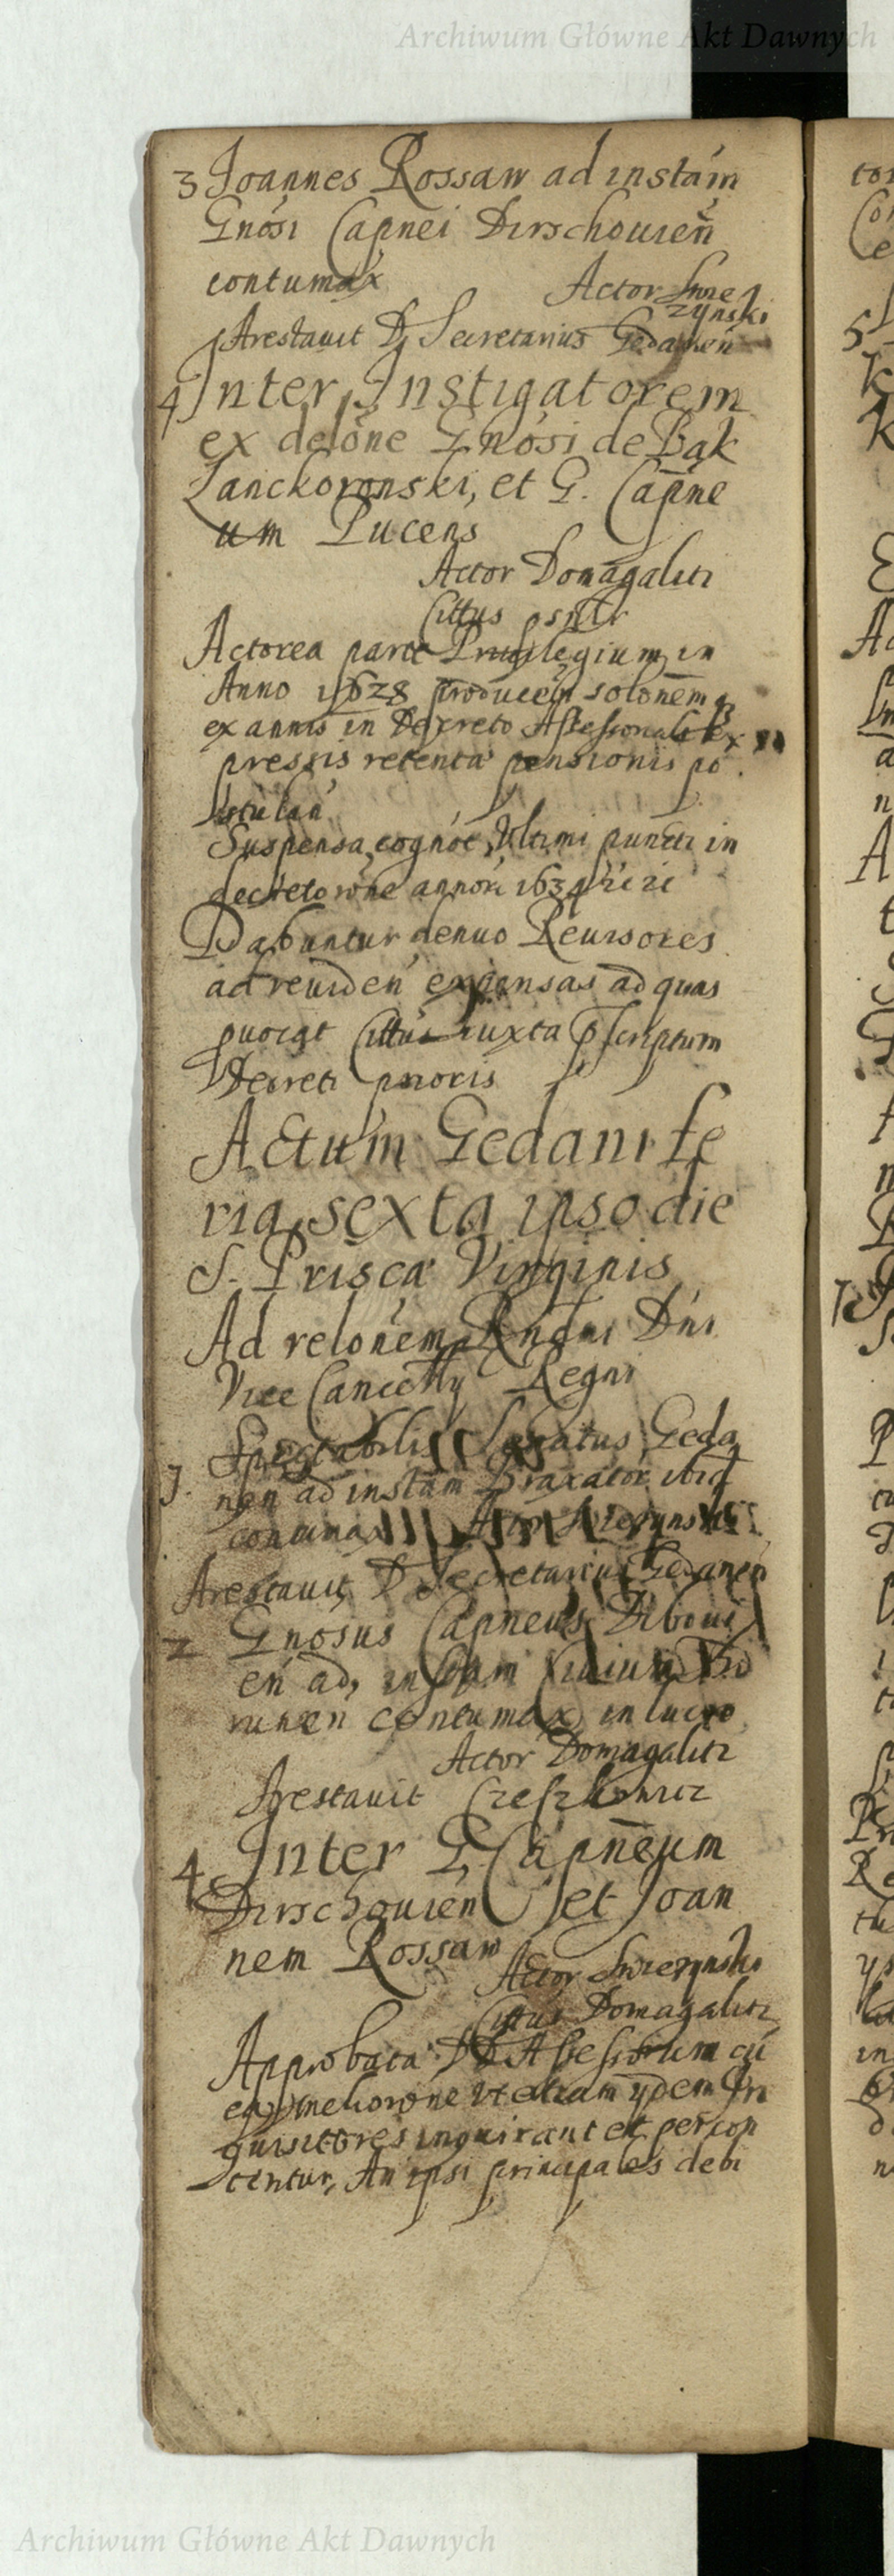 Archiwum Główne Akt Dawnych
3 Joannes Rossaw ad instam
Gnosi Capnei Dirschouien
contumax Actor Swie
zynski
Arestauit D. Secretarius Gedanen
4 Inter Instigatorem
ex delone Gnosi de Bąk
Lanckoronski, et G. Capne
um Pucens
Actor Domagalicz
Cittus
Actorea parte Priuilegium in
Anno 1628 producen solonem
ex annis in Decreto Assessoriali ex
pressis retenta pensionis po
stulan
Suspensa cognoe Ultimi puncti in
decreto annor 1634
Dabuntur denuo Reuisores
ad reuiden expensas ad quas
prouocat Cittus iuxta pscriptum
Decreti prioris
Actum Gedani fe
ria sexta ipso die
S. Priscæ Virginis
Ad relonem Rndmi Dni
Vice Cancellry Regni
1. Spectabilis Senatus Geda
nen ad instam Braxator ibid
contumax Actor Swiezynski
Arestauit D Secretarius Gedanen
2 Gnosus Capneus Diboui
en ad instam Ciuium
runen contumax in lucro
Actor Domagalicz
Arestauit Czeszkowicz
4 Inter G. Capneum
Dirschouien et Joan
nem Rossaw
Actor Swiezynski
Cittus Domagalicz
Approbata DD Assessorum cu
ea meliorone vt etiam ydem In
quisitores inquirant et percon
tentur, An ipsi principales debi
Archiwum Główne Akt Dawnych